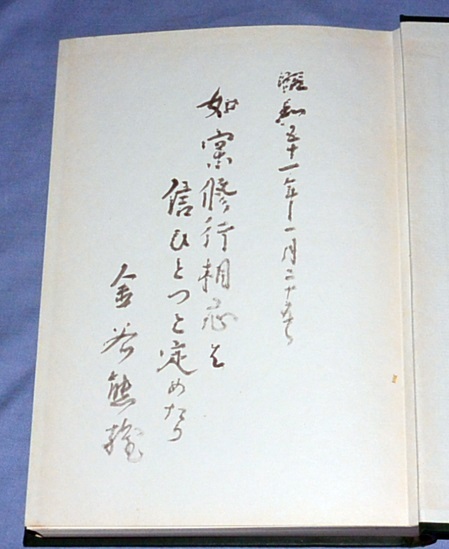 昭和五十一年一月二十五日
如實修行相応は
信ひとつと定めたり
金谷熊